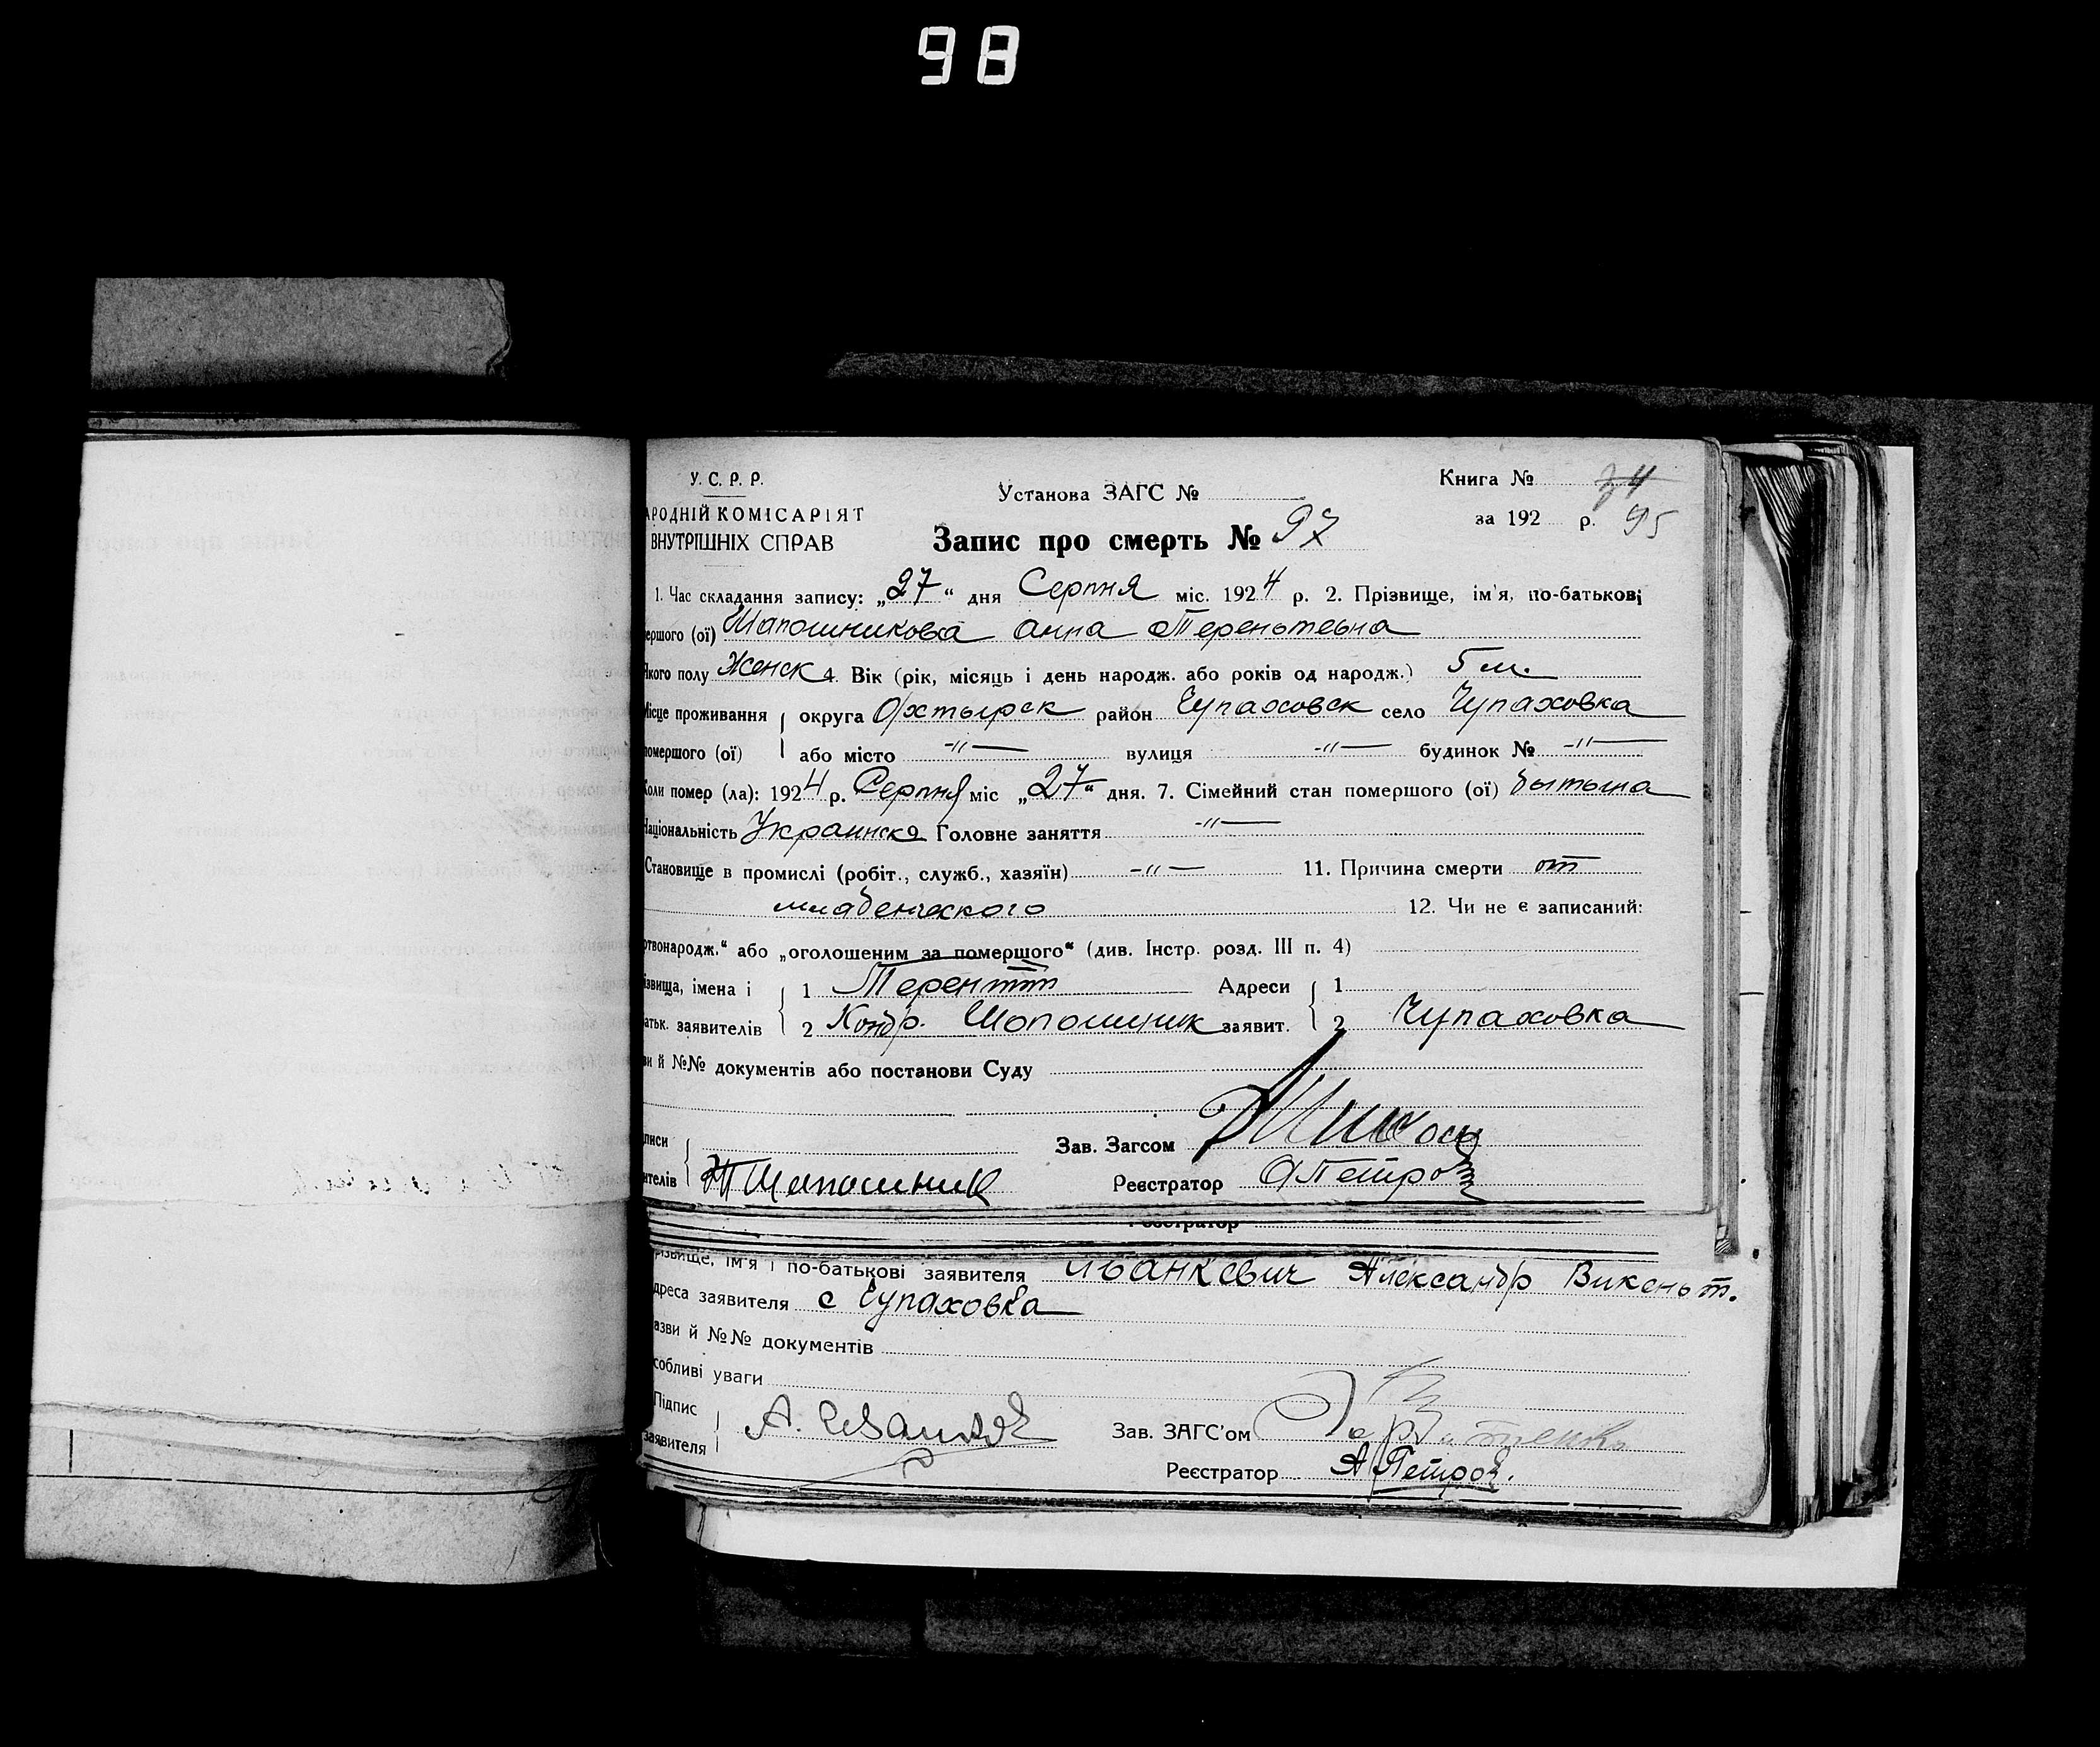 98
У. С. Р. Р.
Установа ЗАГС №
Книга № 34
АРОДНІЙ КОМІСАРІЯТ
за 192 р. 95
ВНУТРІШНІХ СПРАВ
Запис про смерть № 97
1. Час складання запису: „27“ дня Серпня міс. 1924 р. 2. Прізвище, ім'я, по-батькові
ершого (ої) Шапошникова Анна Тереньтевна
Якого полу Женск 4. Вік (рік, місяць і день народж. або років од народж.) 5 м.
Місце проживання округа Охтырск район Чупаховск село Чупаховка
помершого (ої) або місто -"- вулиця -"- будинок № -"-
Коли помер (ла): 1924 р. Серпня міс „27“ дня. 7. Сімейний стан помершого (ої)
Національність Украинска Головне заняття -"-
Становище в промислі (робіт., служб., хазяїн) -"- 11. Причина смерти от
младенческого 12. Чи не є записаний:
ртвонародж.“ або „оголошеним за помершого“ (див. Інстр. розд. III п. 4)
ізвища, імена і 1 Терентт Адреси 1
атьк. заявителів 2 Кондр. Шопошник заявит. 2 Чупаховка
ви й №№ документів або постанови Суду
писи
Зав. Загсом
ителів Шапошник Реєстратор АПетров
Реєстратор
різвище, ім'я і по-батькові заявителя Иванкевич Александр Викеньт.
дреса заявителя с Чупаховка
азви й №№ документів
собливі уваги
Підпис
заявителя А. Зав. ЗАГС'ом
Реєстратор А Петров.